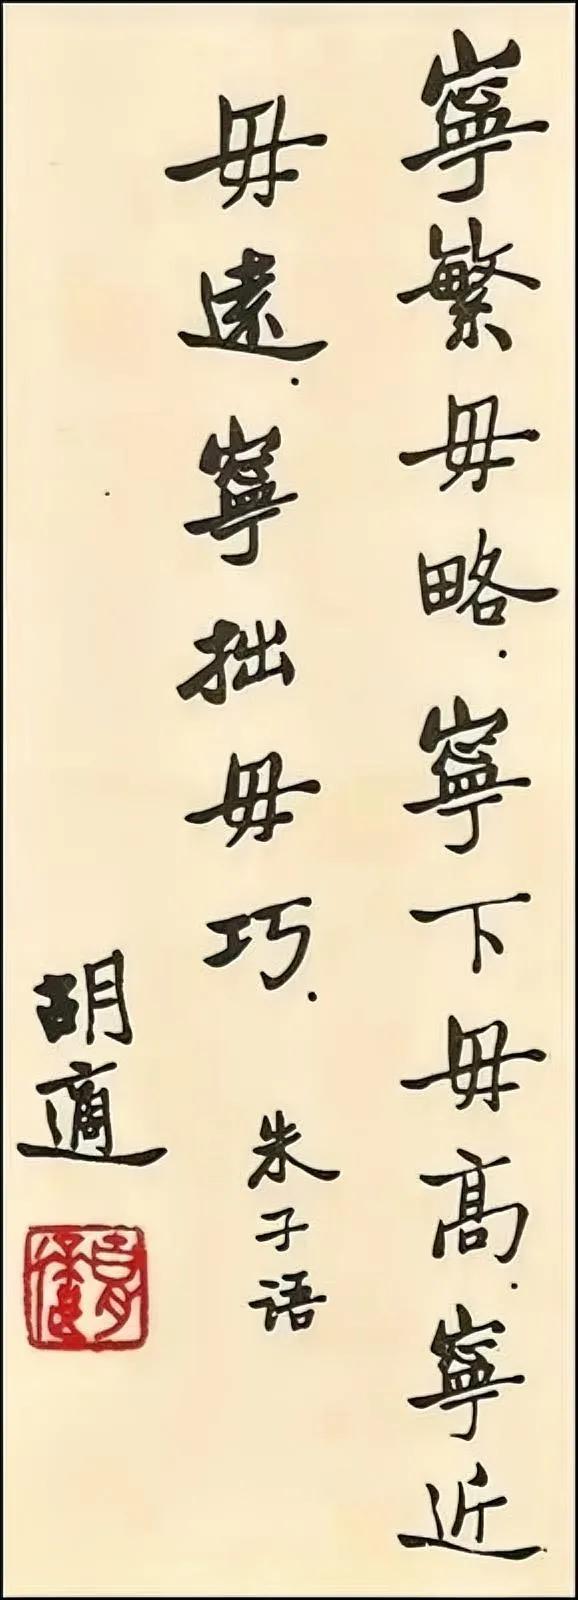 寧繁毋略.寧下毋高.寧近
毋遠.寧拙毋巧.
朱子语
胡適